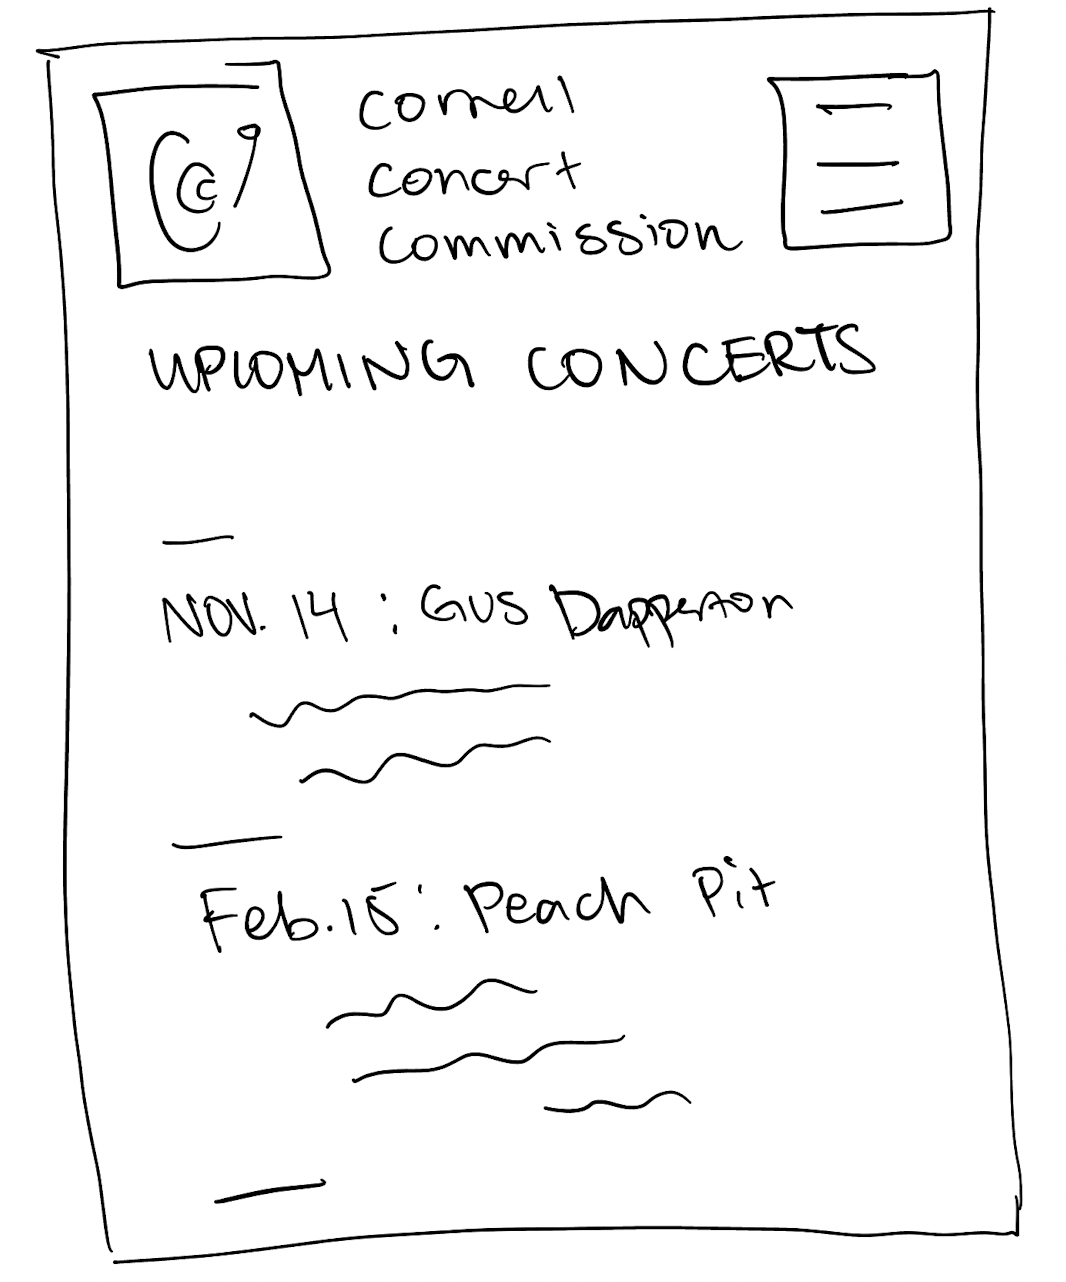 CCC
cornell
concert
commission
UPCOMING CONCERTS
NOV. 14 : GUS Dapperton
Feb. 15 : Peach Pit